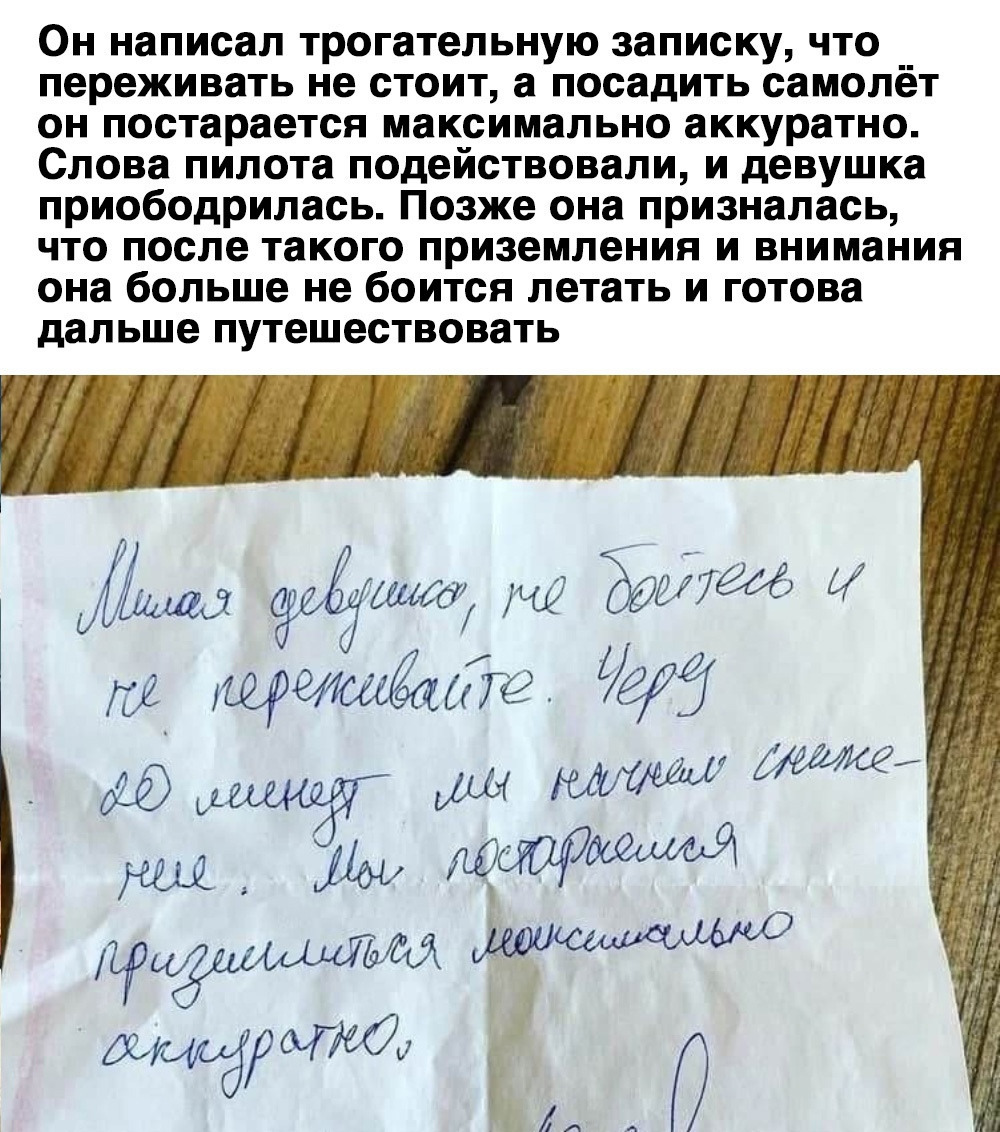 Он написал трогательную записку, что
переживать не стоит, а посадить самолёт
он постарается максимально аккуратно.
Слова пилота подействовали, и девушка
приободрилась. Позже она призналась,
что после такого приземления и внимания
она больше не боится летать и готова
дальше путешествовать
Милая девушка, не бойтесь и
не переживайте. Через
20 минут мы начнем сниже-
ние. Мы постараемся
приземлиться максимально
аккуратно.